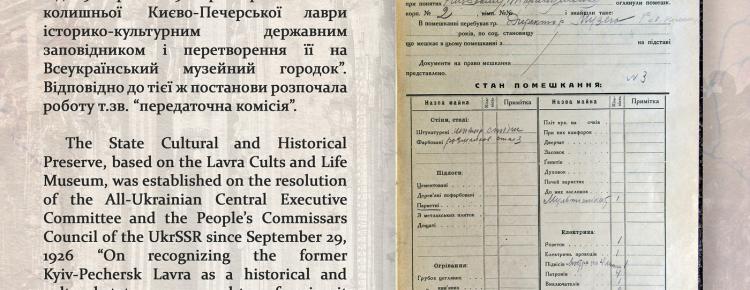 колишньої Києво-Печерської лаври
історико-культурним державним
заповідником і перетворення її на
Всеукраїнський музейний городок”.
Відповідно до тієї ж постанови розпочала
роботу т.зв. “передаточна комісія”.
The State Cultural and Historical
Preserve, based on the Lavra Cults and Life
Museum, was established on the resolution
of the All-Ukrainian Central Executive
Committee and the People’s Commissars
Council of the UkrSSR since September 29,
1926 “On recognizing the former
Kyiv-Pechersk Lavra as a historical and
при понятих оглянули помешк.
корп. № 2 і знайшли таке:
В помешканні перебував гр. Директор Музею
років, по соц. становищу
що мешкає в цьому помешканні з на підставі
Документи на право мешкання
представлено.
№3
СТАН ПОМЕШКАННЯ:
Назва майна Примітка Назва майна Примітка
Стіни, стелі:
Штукатурені
Фарбовані
Підлоги:
Цементовані
Дерев'яні пофарбовані
Паркетні
З метлаських плиток
Дощані
Огрівання:
Грубок цегляних
Пліт кух. на очків
При них камфорок
Дверцят
Засовок
Гвинтів
Духовок
Печей варистих
До них заслонок
Електрика:
Розеток 1
Електрич. проводів 1
Підвісів
Патронів 4
Виключателів 1